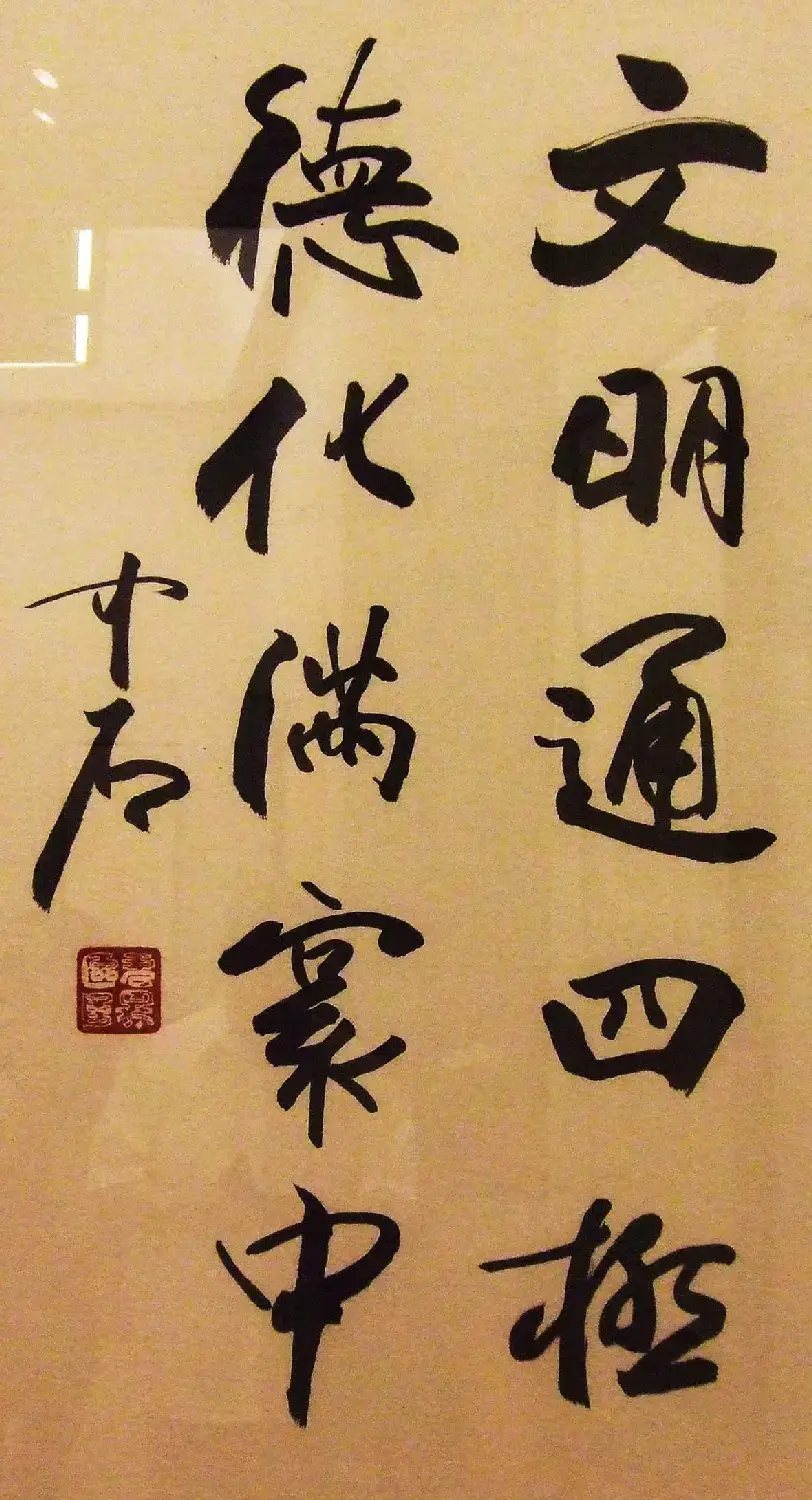 文明通四極
德化滿寰中
中石